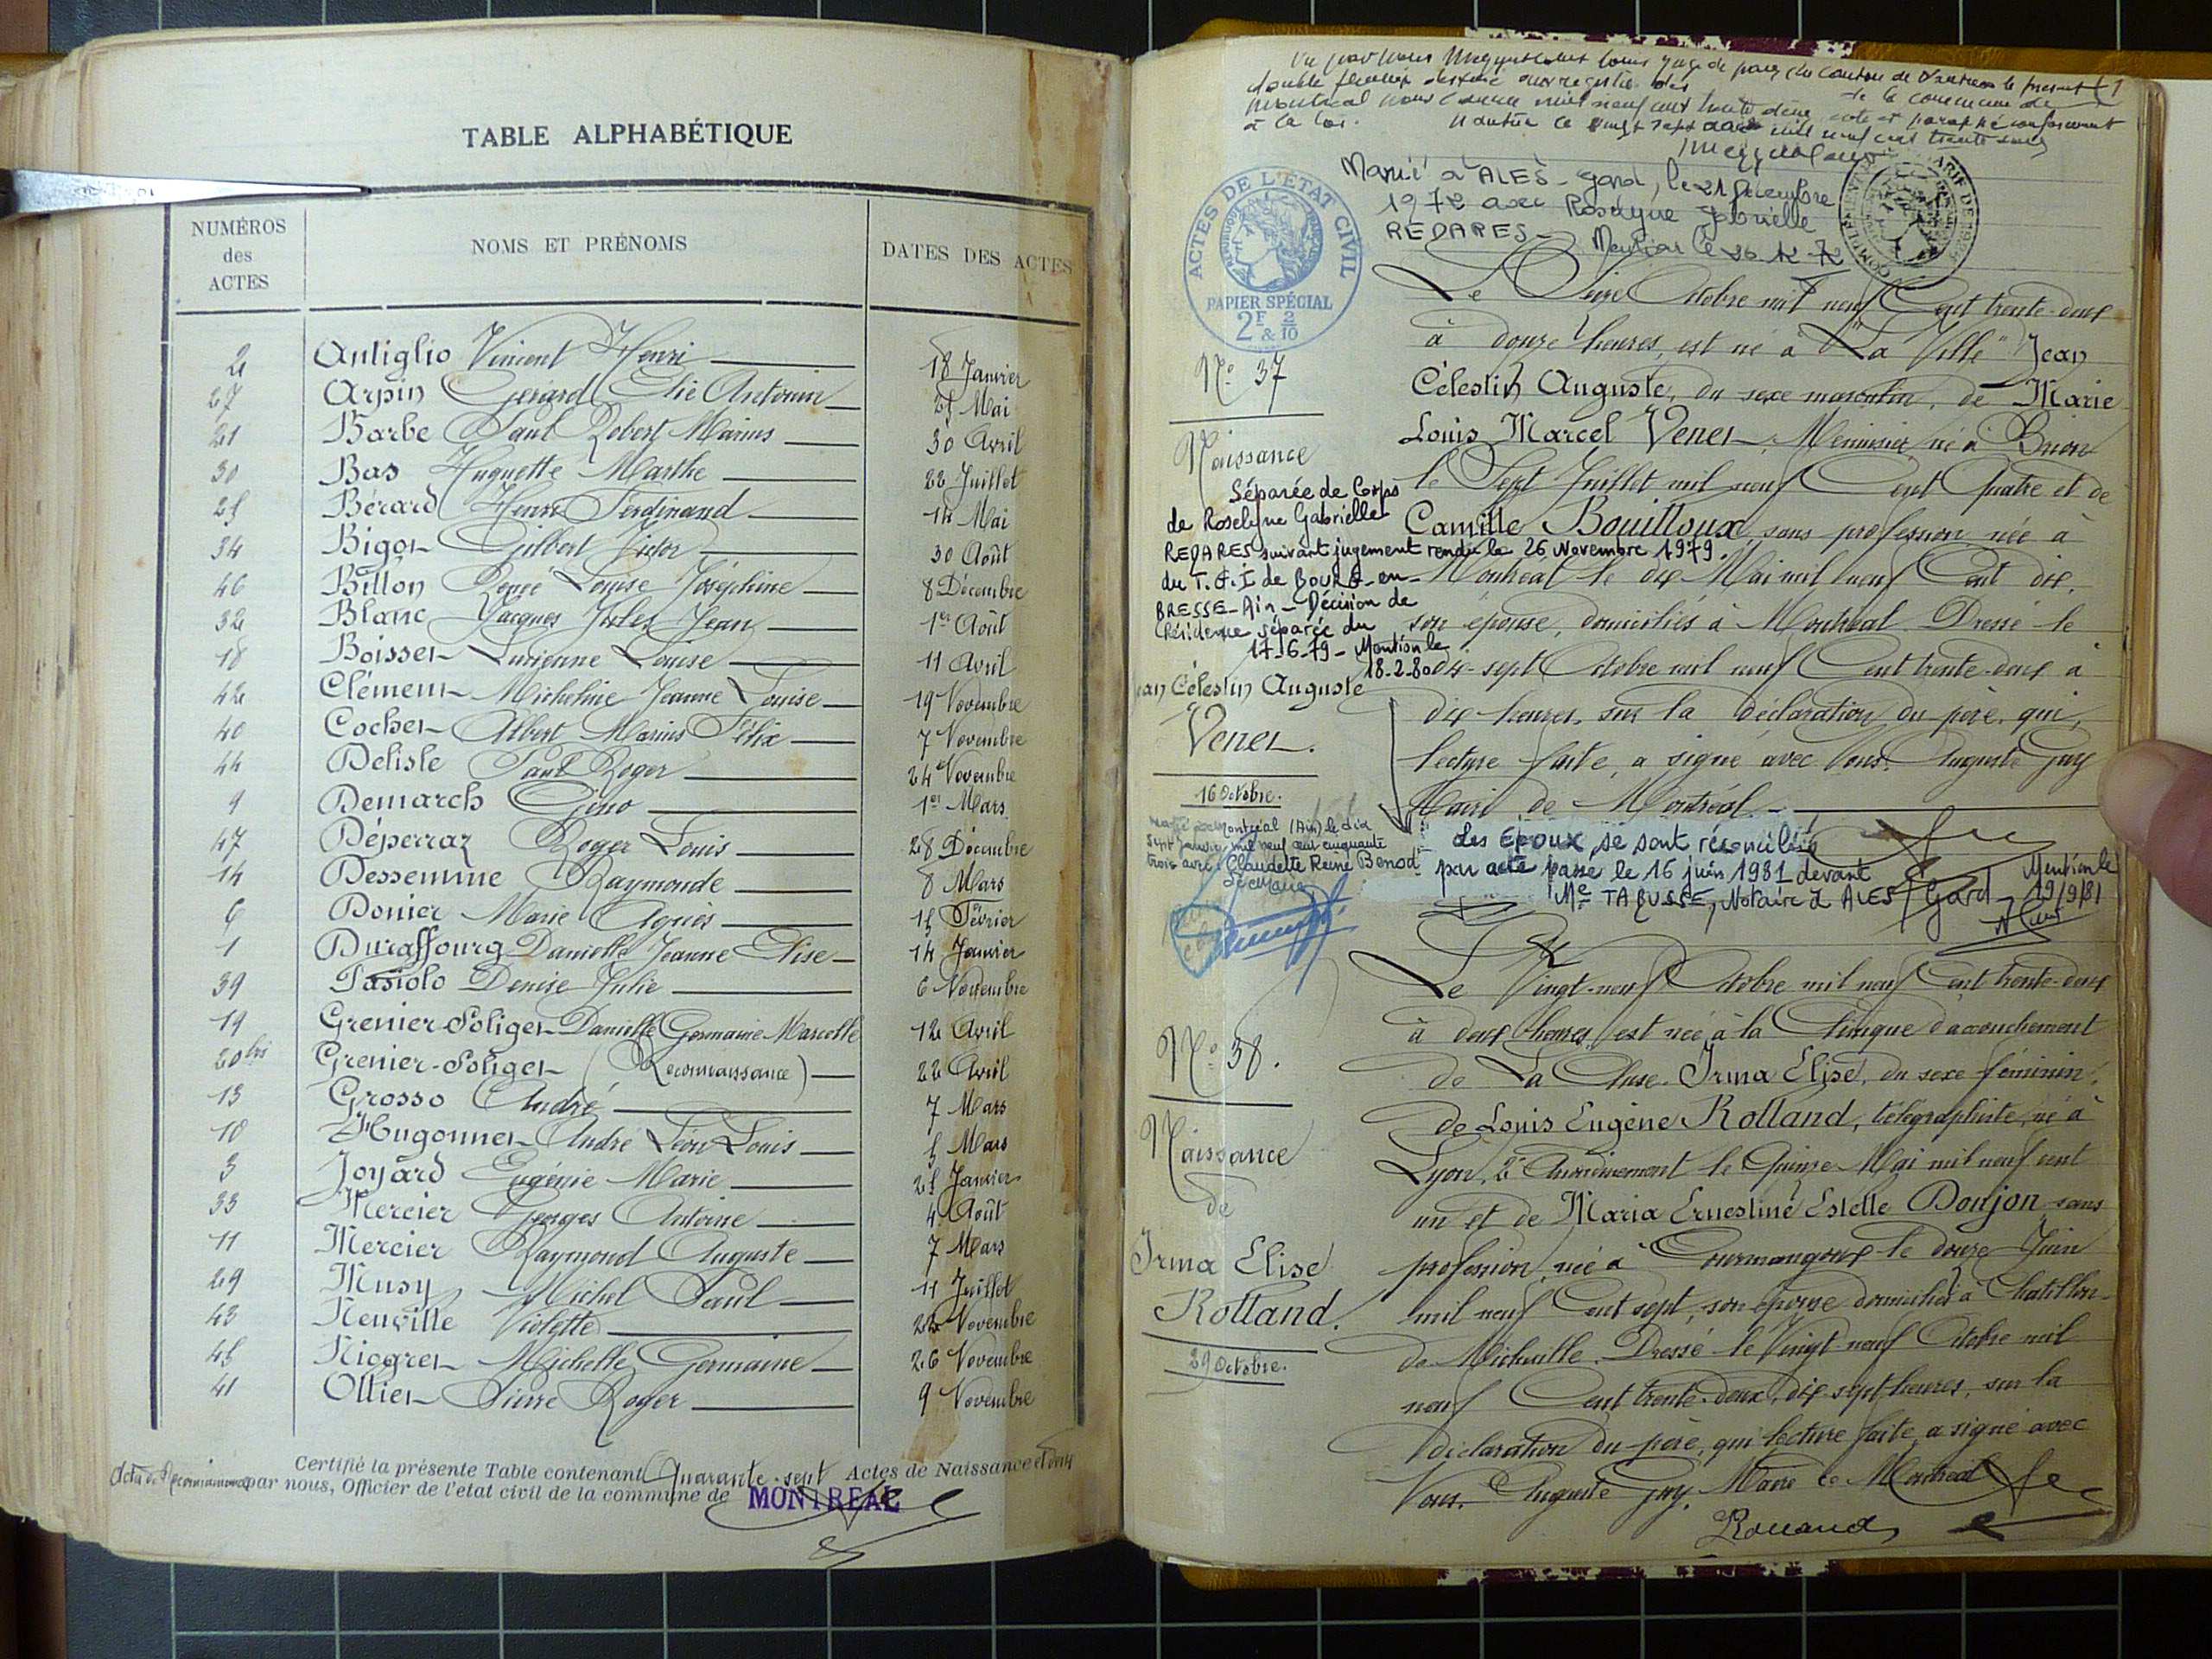 TABLE ALPHABÉTIQUE
NUMÉROS des ACTES
NOMS ET PRÉNOMS
DATES DES ACTES
2 Antiglio Vincent Henri 18 Janvier
27 Arpin Gérard Elie Antonin 25 Mai
21 Barbe Paul Robert Marius 30 Avril
30 Bas Huguette Marthe 22 Juillet
25 Bérard Henri Ferdinand 14 Mai
34 Bigot Gilbert Victor 30 Août
46 Billon Renée Louise Joséphine 8 Décembre
32 Blanc Jacques Jules Jean 1er Août
18 Boisset Lucienne Louise 11 Avril
42 Clément Micheline Jeanne Louise 19 Novembre
40 Cochet Albert Marius Félix 7 Novembre
44 Delisle Paul Roger 24 Novembre
9 Demarch Gino 1er Mars
47 Déperraz Roger Louis 28 Décembre
14 Dessemme Raymonde 8 Mars
6 Donier Marie Agnès 15 Février
1 Duraffourg Danielle Jeanne Elise 14 Janvier
39 Fasiolo Denise Julie 6 Novembre
19 Grenier-Soliget Danielle Germaine Marcelle 12 Avril
20 bis Grenier-Soliget (Reconnaissance) 22 Avril
13 Grosso André 7 Mars
10 Hugonnet André Léon Louis 5 Mars
3 Joyard Eugénie Marie 25 Janvier
33 Mercier Georges Antoine 4 Août
11 Mercier Raymond Auguste 7 Mars
29 Musy Michel Paul 11 Juillet
43 Neuville Violette 22 Novembre
45 Niogret Michelle Germaine 26 Novembre
41 Ollier Pierre Roger 9 Novembre
Certifié la présente Table contenant Quarante-sept Actes de Naissance
par nous, Officier de l'état civil de la commune de MONTREAL
double feuillet destiné aux registres des
de la commune de
Montréal pour l'année mil neuf cent trente deux, coté et paraphé conformément
à la loi. Nantua ce vingt sept
Marié à ALES - Gard, le 21 Décembre
1972 avec Roselyne Gabrielle
REDARES - Mention le 26.12.72
ACTES DE L'ÉTAT CIVIL
PAPIER SPÉCIAL
2F & 2/10
N° 37
Naissance
Jean Célestin Auguste
Venet.
16 Octobre.
Le Seize Octobre mil neuf Cent trente-deux
à douze heures, est né à "La Ville" Jean
Célestin Auguste, du sexe masculin, de Marie
Louis Marcel Venet, Menuisier, né à Brion
le Sept Juillet mil neuf Cent Quatre et de
Camille Bouilloux, sans profession, née à
Montréal le dix Mai mil neuf Cent dix,
son épouse, domiciliés à Montréal. Dressé le
dix-sept Octobre mil neuf Cent trente-deux à
dix heures, sur la déclaration du père, qui,
lecture faite, a signé avec Nous, Auguste Guy
Maire de Montréal.
Séparée de Corps
de Roselyne Gabrielle
REDARES suivant jugement rendu le 26 Novembre 1979.
du T.G.I de BOURG-en-
BRESSE-Ain - Décision de
Résidence séparée du
17-6-79 - Mention le
18-2-80
Montréal (Ain) le dix
sept Janvier mil neuf cent cinquante
trois avec Claudette Reine Benod
Le Maire
Les Epoux se sont réconciliés
par acte passé le 16 juin 1981 devant
Me TARUSSE, Notaire à ALES / Gard - Mention le
19/9/81
N° 38.
Naissance
de
Irma Elise
Rolland.
29 Octobre.
Le Vingt-neuf Octobre mil neuf Cent trente-deux
à deux heures, est née à la Clinique d'accouchement
de La Cluse, Irma Elise, du sexe féminin,
de Louis Eugène Rolland, télégraphiste, né à
Lyon, 2e Arrondissement le Quinze Mai mil neuf cent
un et de Maria Ernestine Estelle Donjon sans
profession, née à Courmangoux le douze Juin
mil neuf Cent sept, son épouse domiciliés à Chatillon
de Michaille. Dressé le Vingt neuf Octobre mil
neuf Cent trente-deux, dix-sept heures, sur la
déclaration du père, qui lecture faite, a signé avec
Nous. Auguste Guy, Maire de Montréal
Rolland